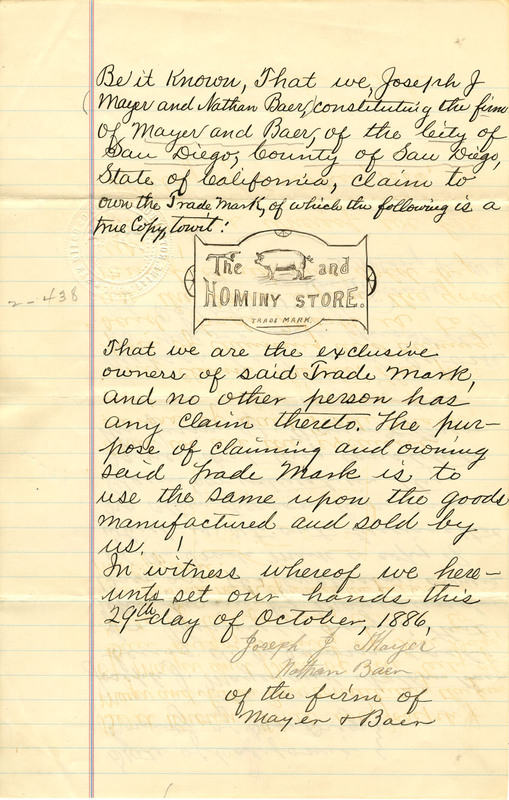 Be it Known, That we, Joseph J
Mayer and Nathan Baer, constituting the firm
of Mayer and Baer, of the City of
San Diego, County of San Diego,
State of California, claim to
own the Trade Mark, of which the following is a
true Copy, towit:
The and
HOMINY STORE.
TRADE MARK.
2-438
That we are the exclusive
owners of said Trade Mark,
and no other person has
any claim thereto. The pur-
pose of claiming and owning
said Trade Mark is to
use the same upon the goods
manufactured and sold by
us. !
In witness whereof we here-
unto set our hands this
29th day of October, 1886,
Joseph J Mayer
Nathan Baer
of the firm of
Mayer & Baer